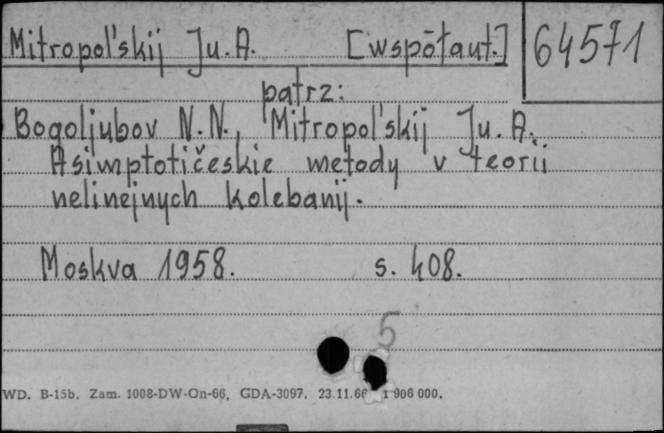 Mitropol'skij Ju. A. [współaut.] 64571
patrz:
Bogoljubov N. N., Mitropol'skij Ju. A.
Asimptotičeskie metody v teorii
nelinejnych kolebanij.
Moskva 1958. s. 408.
5
WD. B-15b. Zam. 1008-DW-On-66. GDA-3097. 23.11.66 1 906 000.